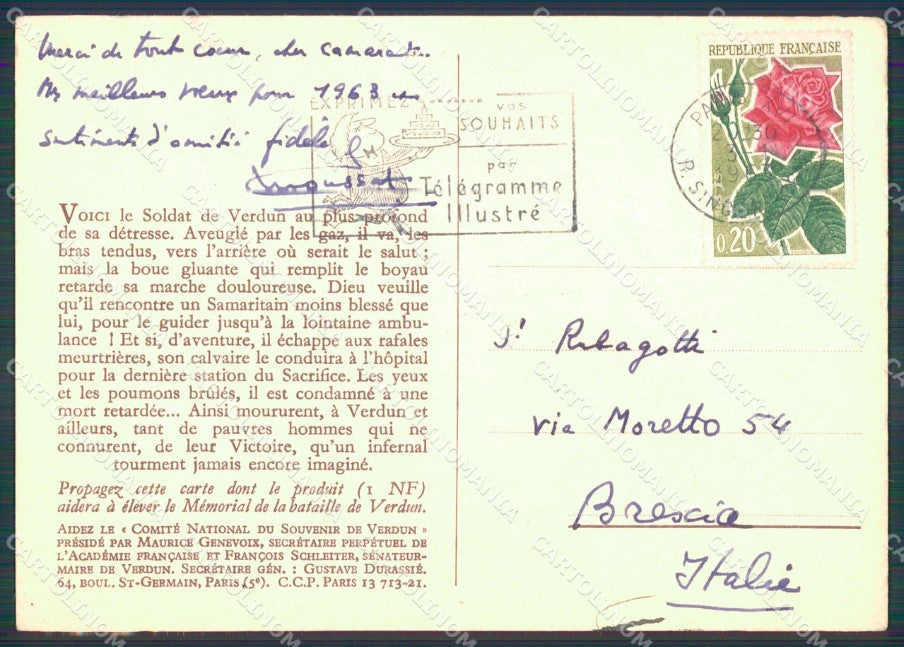 Merci de tout coeur, cher camarade.
Mes meilleurs voeux pour 1963 et
sentiments d'amitié fidèle
EXPRIMEZ VOS
SOUHAITS
par
Télégramme
Illustré
REPUBLIQUE FRANÇAISE
0,20
VOICI le Soldat de Verdun au plus profond
de sa détresse. Aveuglé par les gaz, il va, les
bras tendus, vers l'arrière où serait le salut ;
mais la boue gluante qui remplit le boyau
retarde sa marche douloureuse. Dieu veuille
qu'il rencontre un Samaritain moins blessé que
lui, pour le guider jusqu'à la lointaine ambu-
lance ! Et si, d'aventure, il échappe aux rafales
meurtrières, son calvaire le conduira à l'hôpital
pour la dernière station du Sacrifice. Les yeux
et les poumons brûlés, il est condamné à une
mort retardée... Ainsi moururent, à Verdun et
ailleurs, tant de pauvres hommes qui ne
connurent, de leur Victoire, qu'un infernal
tourment jamais encore imaginé.
Propagez cette carte dont le produit (1 NF)
aidera à élever le Mémorial de la bataille de Verdun.
AIDEZ LE « COMITÉ NATIONAL DU SOUVENIR DE VERDUN »
PRÉSIDÉ PAR MAURICE GENEVOIX, SECRÉTAIRE PERPÉTUEL DE
L'ACADÉMIE FRANÇAISE ET FRANÇOIS SCHLEITER, SÉNATEUR-
MAIRE DE VERDUN. SECRÉTAIRE GÉN. : GUSTAVE DURASSIÉ.
64, BOUL. ST-GERMAIN, PARIS (5e). C.C.P. PARIS 13 713-21.
Ribagotti
via Moretto 54
Brescia
Italie
CARTOLINOMANIA